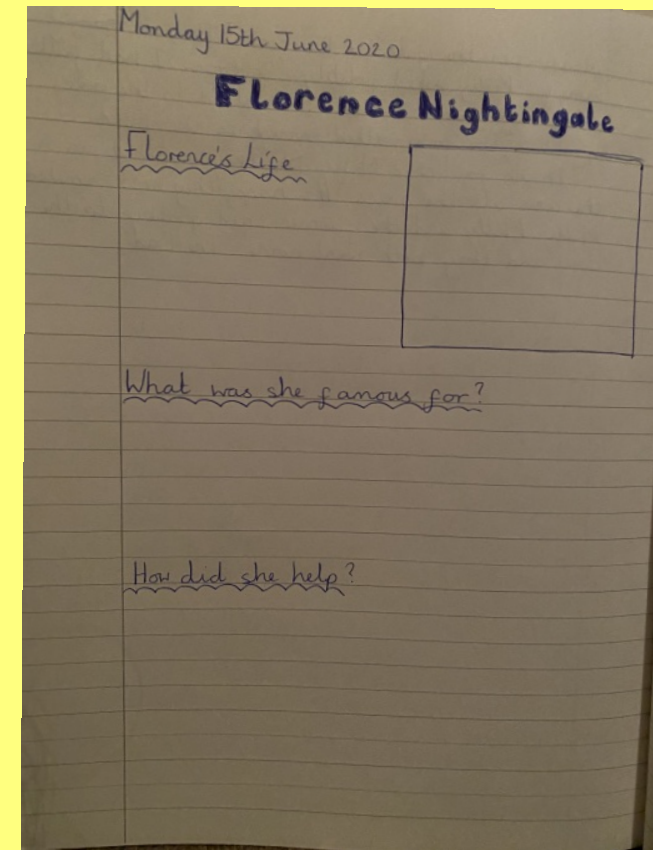 Monday 15th June 2020
Florence Nightingale
Florence's Life
What was she famous for?
How did she help?